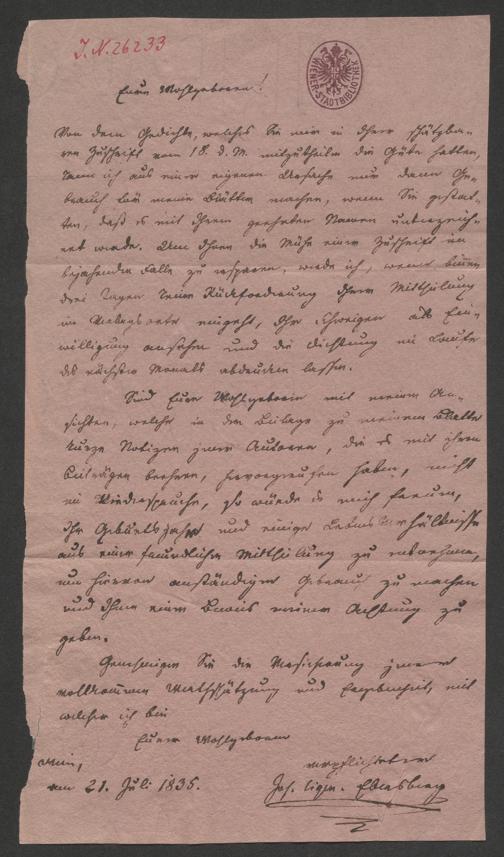 J. N. 26233
WIENER-STADTBIBLIOTHEK
Euer Wohlgeboren!
Von dem Gedichte, welches Sie mir in Ihrer schätzba-
ren Zuschrift vom 18. d. M. mitzutheilen die Güte hatten,
kann ich aus einer eigenen Ursache nur dann Ge-
brauch für meine Blätter machen, wenn Sie gestat-
ten, daß es mit Ihrem geehrten Namen unterzeich-
net werde. Um Ihnen die Mühe einer Zuschrift im
bejahenden Falle zu ersparen, werde ich, wenn binnen
drei Tagen keine Rückforderung Ihrer Mittheilung
im eingeht, Ihr Schweigen als Ein-
willigung ansehen und die Dichtung im Laufe
des nächsten Monats abdrucken lassen.
Sind Euer Wohlgeboren mit meinen An-
sichten, welche in der Beilage zu meinem Blatte
kurze Notizen jener Autoren, die es mit ihren
Beiträgen beehren, hervorgerufen haben, nicht
im Widerspruche, so würde es mich freuen,
Ihr Geburtsjahr und einige Lebensverhältnisse
aus einer freundlichen Mittheilung zu entnehmen,
um hievon anständigen Gebrauch zu machen
und Ihnen einen Beweis meiner Achtung zu
geben.
Genehmigen Sie die Versicherung jener
vollkommenen Werthschätzung und Ergebenheit, mit
welcher ich bin
Euer Wohlgeboren
Wien,
am 21. Juli 1835.
verpflichteter
Jos. Sigm. Ebersberg